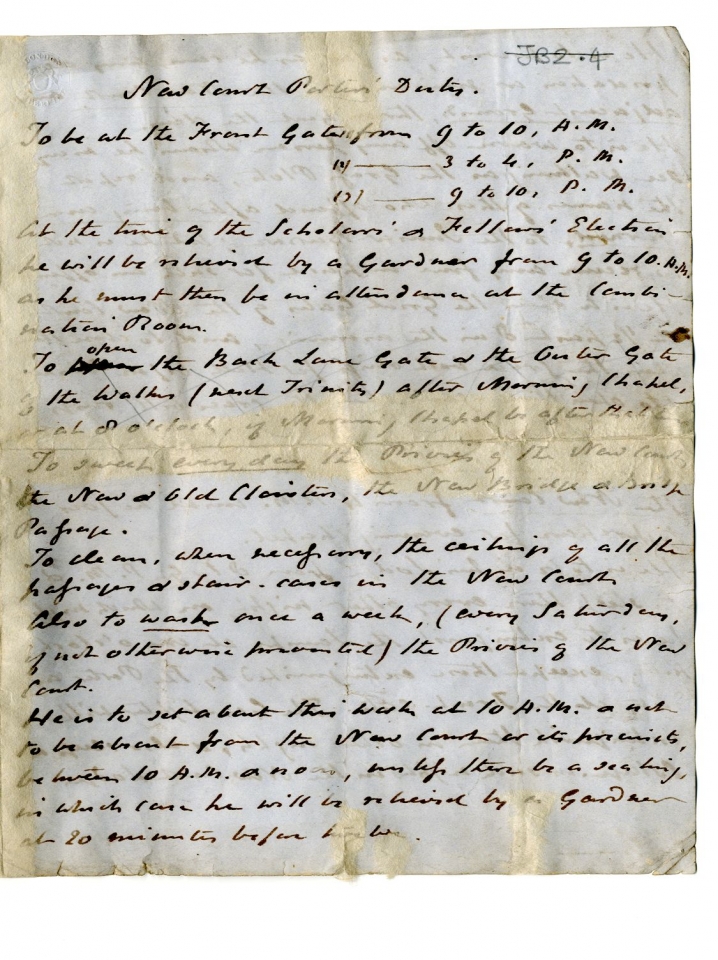 JB2.4
New Court Porter's Duty.
To be at the Front Gate from 9 to 10, A.M.
3 to 4, P.M.
9 to 10, P.M.
At the time of the Scholars' & Fellows' Election
he will be relieved by a Gardner from 9 to 10. A.M.
as he must then be in attendance at the Combi-
nation Room.
To open the Back Lane Gate & the Outer Gate
of the Walks (next Trinity) after Morning Chapel,
or at 8 o'clock, if Morning Chapel be after that
To sweep every day the Privies of the New Court
the New & Old Cloisters, the New Bridge & Bridge
Passage.
To clean, when necessary, the ceilings of all the
passages & stair-cases in the New Court
Also to wash once a week, (every Saturday,
if not otherwise prevented) the Privies of the New
Court.
He is to set about this work at 10 A.M. & not
to be absent from the New Court or its precincts,
between 10 A.M. & noon, unless there be a sealing,
in which case he will be relieved by a Gardner
at 20 minutes before twelve.